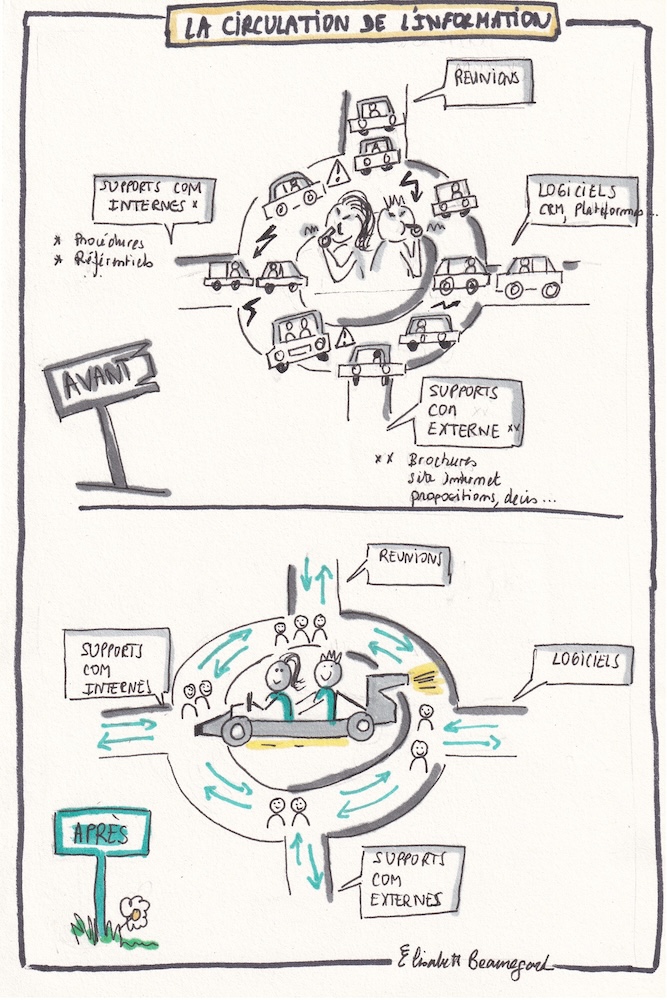 LA CIRCULATION DE L'INFORMATION
REUNIONS
SUPPORTS COM
INTERNES *
* Procédures
* Référentiels
...
LOGICIELS
CRM, Plateformes...
AVANT
SUPPORTS
COM
EXTERNE **
** Brochures
site Internet
propositions, devis...
REUNIONS
SUPPORTS
COM
INTERNES
LOGICIELS
APRÈS
SUPPORTS
COM
EXTERNES
Elisabeth Beauregard